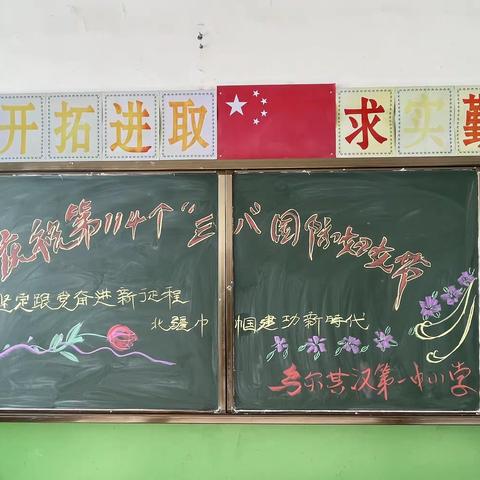 开拓进取 求实勤
庆祝第114个“三八”国际妇女节
坚定跟党奋进新征程
北疆巾帼建功新时代
乌尔其汉第一中小学